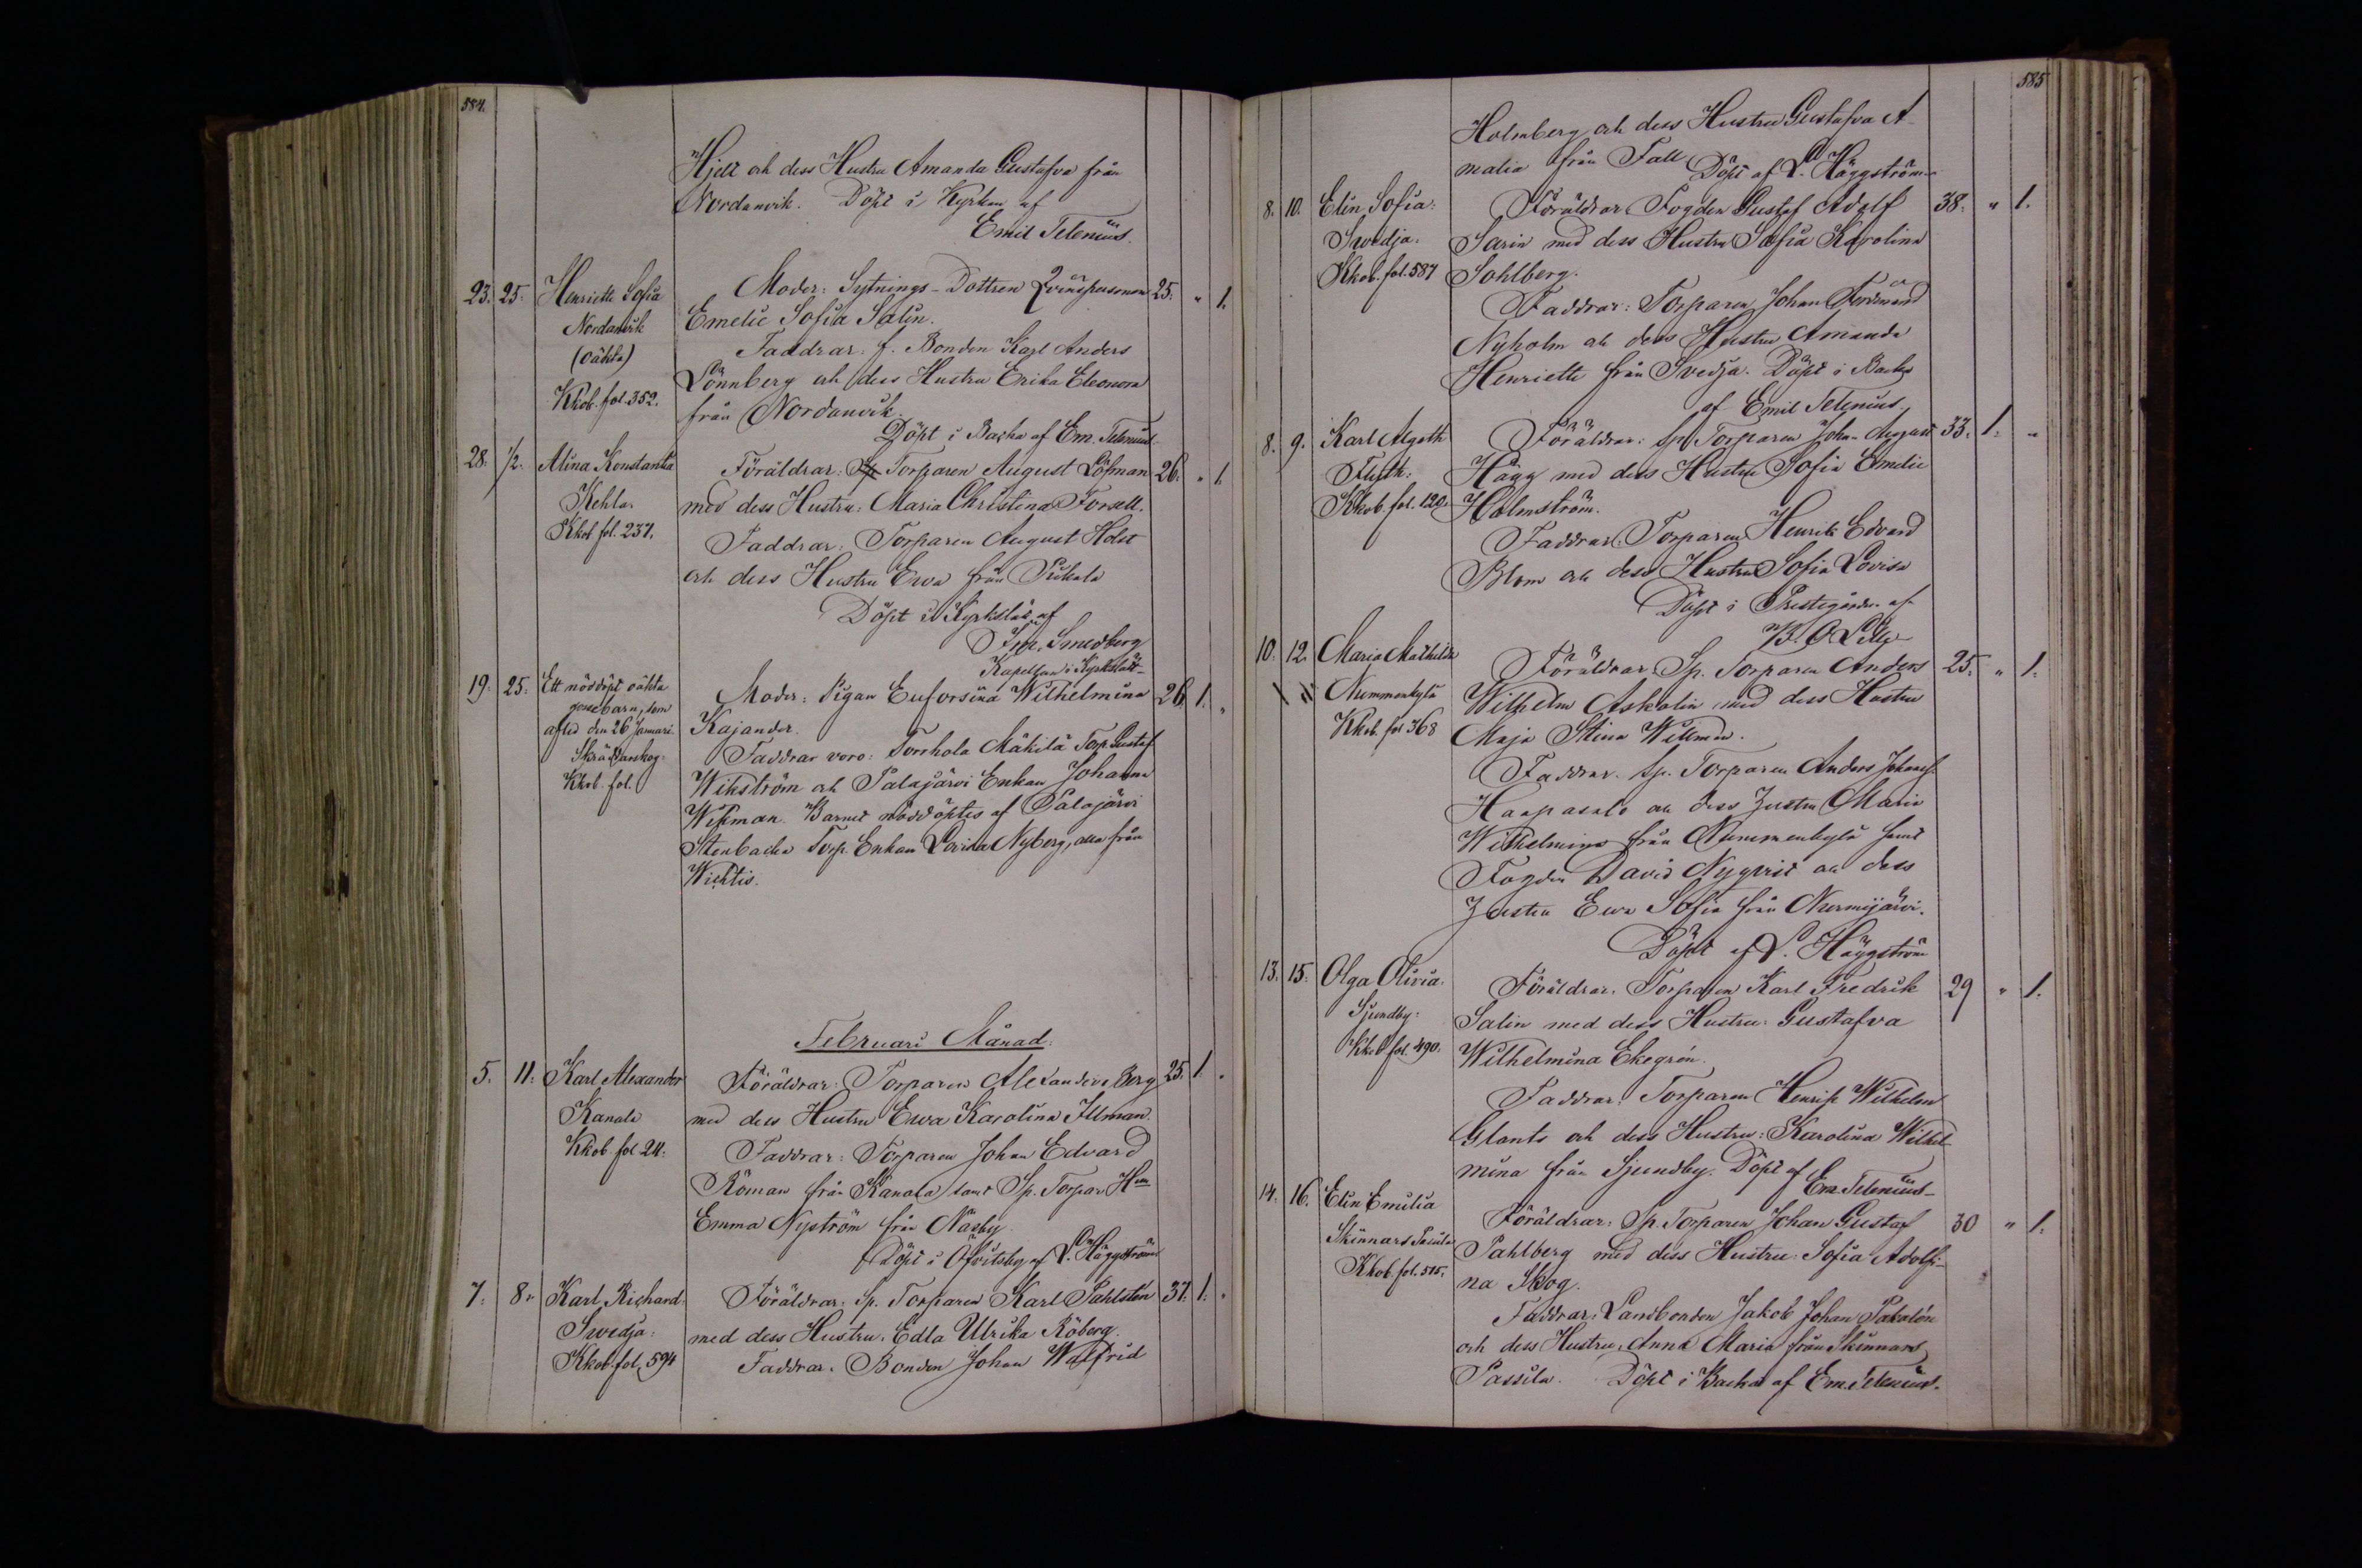 584.
Hjelt och dess Hustru Amanda Gustafva från
Nordanvik. Döpt i Kyrkan af
Emil Telenius.
23. 25. Henriette Sofia Moder: Sytnings-Dottren Qvinspersonen 25. " 1.
Nordanvik Emelie Sofia Salin.
(oäkta) Faddrar: f. Bonden Karl Anders
Kkob. fol. 352. Lönnberg och dess Hustru Erika Eleonora
från Nordanvik.
Döpt i Backa af Em. Telenius
28. 1/2. Alina Konstantia Föräldrar: Torparen August Löfman 26. " 1.
Kehla. med dess Hustru: Maria Christina Forsell.
Kkob fol. 237. Faddrar: Torparen August Holst
och dess Hustru Ewa från Pikala
Döpt i Kyrkslätt af
Smedberg
Kapellan i Kyrkslätt
19. 25. Ett nöddöpt oäkta Moder: Pigan Euforsina Wilhelmina 26 1. "
gossebarn, som Kajander.
afled den 26 Januari. Faddrar voro: Torrhola Mäkilä Torp. Gustaf
Skräddarskog. Wikström och Palajärvi Enkan Johanna
Kkob. fol. Wikman. Barnet nöddöptes af Palajärvi
Stenbacka Torp. Enkan Lovisa Nyberg, alla från
Wichtis.
Februari Månad.
5. 11. Karl Alexander Föräldrar: Torparen Alexander Berg 25. 1. "
Kanala med dess Hustru Ewa Karolina Illman.
Kkob fol 24. Faddrar: Torparen Johan Edvard
Röman från Kanala samt Sp. Torpar Hu
Emma Nyström från Näsby.
Döpt i Öfvitsby af L. Häggström
7. 8. Karl Richard. Föräldrar: Sp. Torparen Karl Sahlstén 37. 1. "
Svedja. med dess Hustru: Edla Ulrika Röberg.
Kkob. fol. 594 Faddrar. Bonden Johan Walfrid
585
Holmberg och dess Hustru Gustafva A-
malia från Fall Döpt af L. Häggström
8. 10. Elin Sofia. Föräldrar Fogden Gustaf Adolf 38. " 1.
Svedja. Sarin med dess Hustru Sofia Karolina
Kkob. fol. 587 Sohlberg.
Faddrar: Torparen Johan Ferdinand
Nyholm och dess Hustru Amanda
Henriette från Svedja. Döpt i Backa
af Emil Telenius.
8. 9. Karl Algoth Föräldrar: Sp. Torparen Johan August 33. 1. "
Hägg med dess Hustru Sofia Emilie
Kkob. fol. 120. Holmström.
Faddrar: Torparen Henrik Edvard
Blom och dess Hustru Sofia Lovisa
Döpt i Prestegården af
10. 12. Maria Mathilda Föräldrar: Sp. Torparen Anders 25. " 1.
Nummenkylä Wilhelm Askolin med dess Hustru
Kkob. fol 368 Maja Stina Willman.
Faddrar. Sp. Torparen Anders Johansf.
Haapasalo och dess Hustru Maria
Wilhelmina från Nummenkylä samt
Fogden David Nyqvist och dess
Hustru Ewa Sofia från Nurmijärvi.
Döpt af L. Häggström
13. 15. Olga Olivia. Föräldrar: Torparen Karl Fredrik 29 " 1.
Sjundby. Salin med dess Hustru: Gustafva
Kkob fol. 490. Wilhelmina Ekegrén.
Faddrar: Torparen Henrik Wilhelm
Glants och dess Hustru: Karolina Wilhel-
mina från Sjundby. Döpt af
Em. Telenius
14. 16. Elin Emilia Föräldrar: Sp. Torparen Johan Gustaf 30 " 1.
Skinnars Pasila Pahlberg med dess Hustru: Sofia Adolfi-
Kkob. fol. 515. na Skog.
Faddrar: Landbonden Jakob Johan Pakalén
och dess Hustru: Anna Maria från Skinnars
Passila. Döpt i Backa af Em. Telenius.